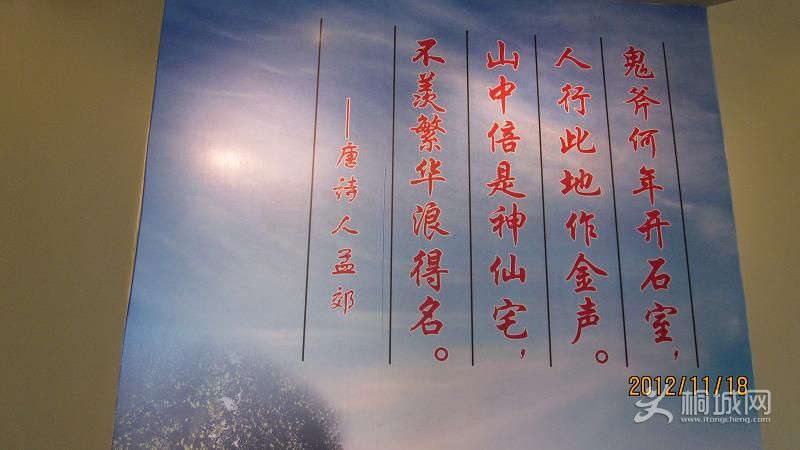 鬼斧何年开石室，
人行此地作金声。
山中倍是神仙宅，
不羡繁华浪得名。
——唐诗人孟郊
2012/11/18
桐城网
www.itongcheng.com